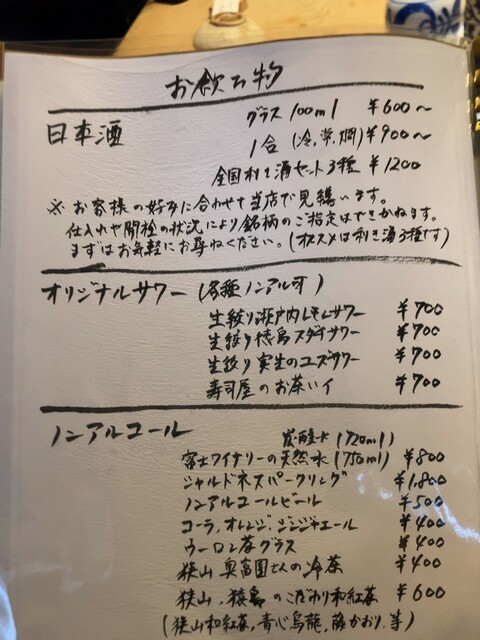 お飲み物
日本酒 グラス 100ml ¥600〜
1合 (冷,常,燗) ¥900〜
全国利き酒セット3種 ¥1200
※ お客様の好みに合わせて当店で見繕います。
仕入れや開栓の状況により銘柄のご指定はできかねます。
まずはお気軽にお尋ねください。(オススメは利き酒3種です)
オリジナルサワー (各種ノンアル可)
生絞り瀬戸内レモンサワー ¥700
生絞り徳島スダチサワー ¥700
生絞り実生のユズサワー ¥700
寿司屋のお茶ハイ ¥700
ノンアルコール 炭酸水 (720ml)
富士ワイナリーの天然水 (750ml) ¥800
シャルドネスパークリング ¥1,800
ノンアルコールビール ¥500
コーラ,オレンジ,ジンジャエール ¥400
ウーロン茶グラス ¥400
狭山 奥富園さんの冷茶 ¥400
狭山,猿島のこだわり和紅茶 ¥600
(狭山和紅茶,青心烏龍,藤かおり,等)